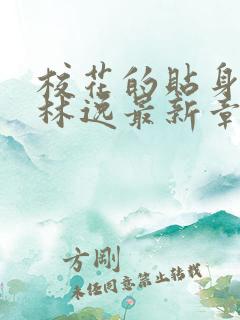 校花的贴身
林逸最新章
方刚
未经同意禁止转载